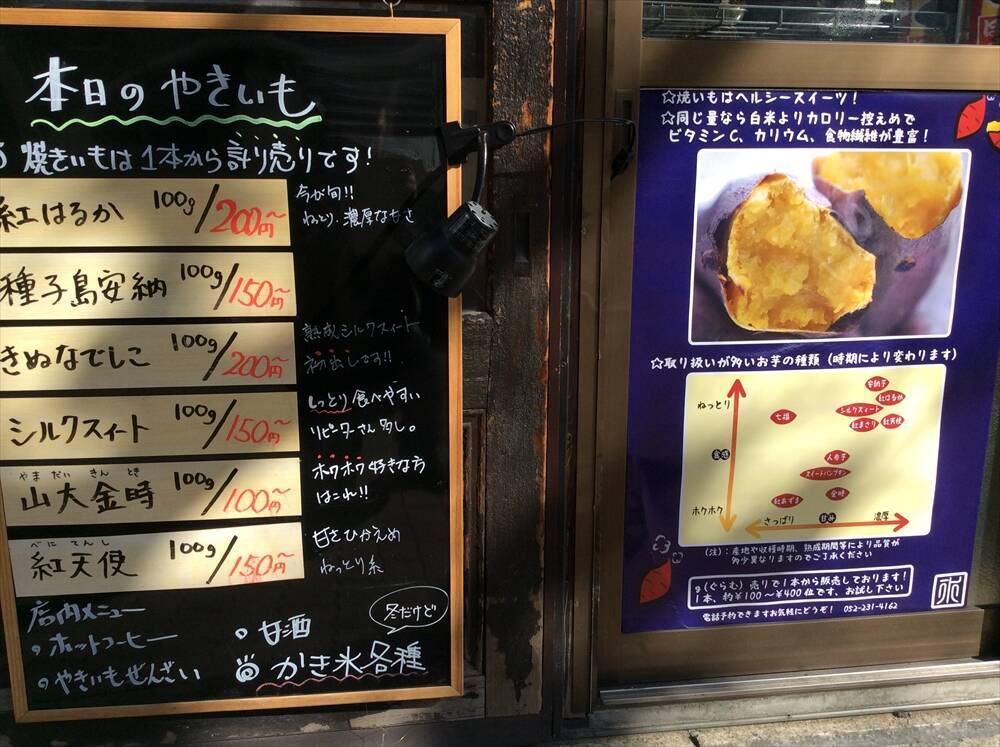 本日のやきいも
焼きいもは1本から計り売りです!
紅はるか 100g/200円~
今が旬!!
ねっとり、濃厚な甘さ
種子島安納 100g/150円~
きぬなでしこ 100g/200円~
熟成シルクスイート
初出しです!!
シルクスイート 100g/150円~
しっとり食べやすい
リピーターさん多し。
やまだいきんとき
山大金時 100g/100円~
ホクホク好きな方
はこれ!!
べにてんし
紅天使 100g/150円~
甘さひかえめ
ねっとり系
店内メニュー
・ホットコーヒー
・やきいもぜんざい
・甘酒
冬だけど
かき氷各種
☆焼いもはヘルシースイーツ!
☆同じ量なら白米よりカロリー控えめで
ビタミンC、カリウム、食物繊維が豊富!
☆取り扱いが多いお芋の種類(時期により変わります)
ねっとり
食感
ホクホク
さっぱり
甘み
濃厚
安納芋
紅はるか
シルクスイート
紅まさり
紅天使
七福
人参芋
スイートパンプキン
金時
紅あずま
(注):産地や収穫時期、熟成期間等により品質が
多少異なりますのでご了承ください
g(ぐらむ)売りで1本から販売しております!
1本、約¥100~¥400位です、お試し下さい
電話予約できますお気軽にどうぞ! 052-231-4162